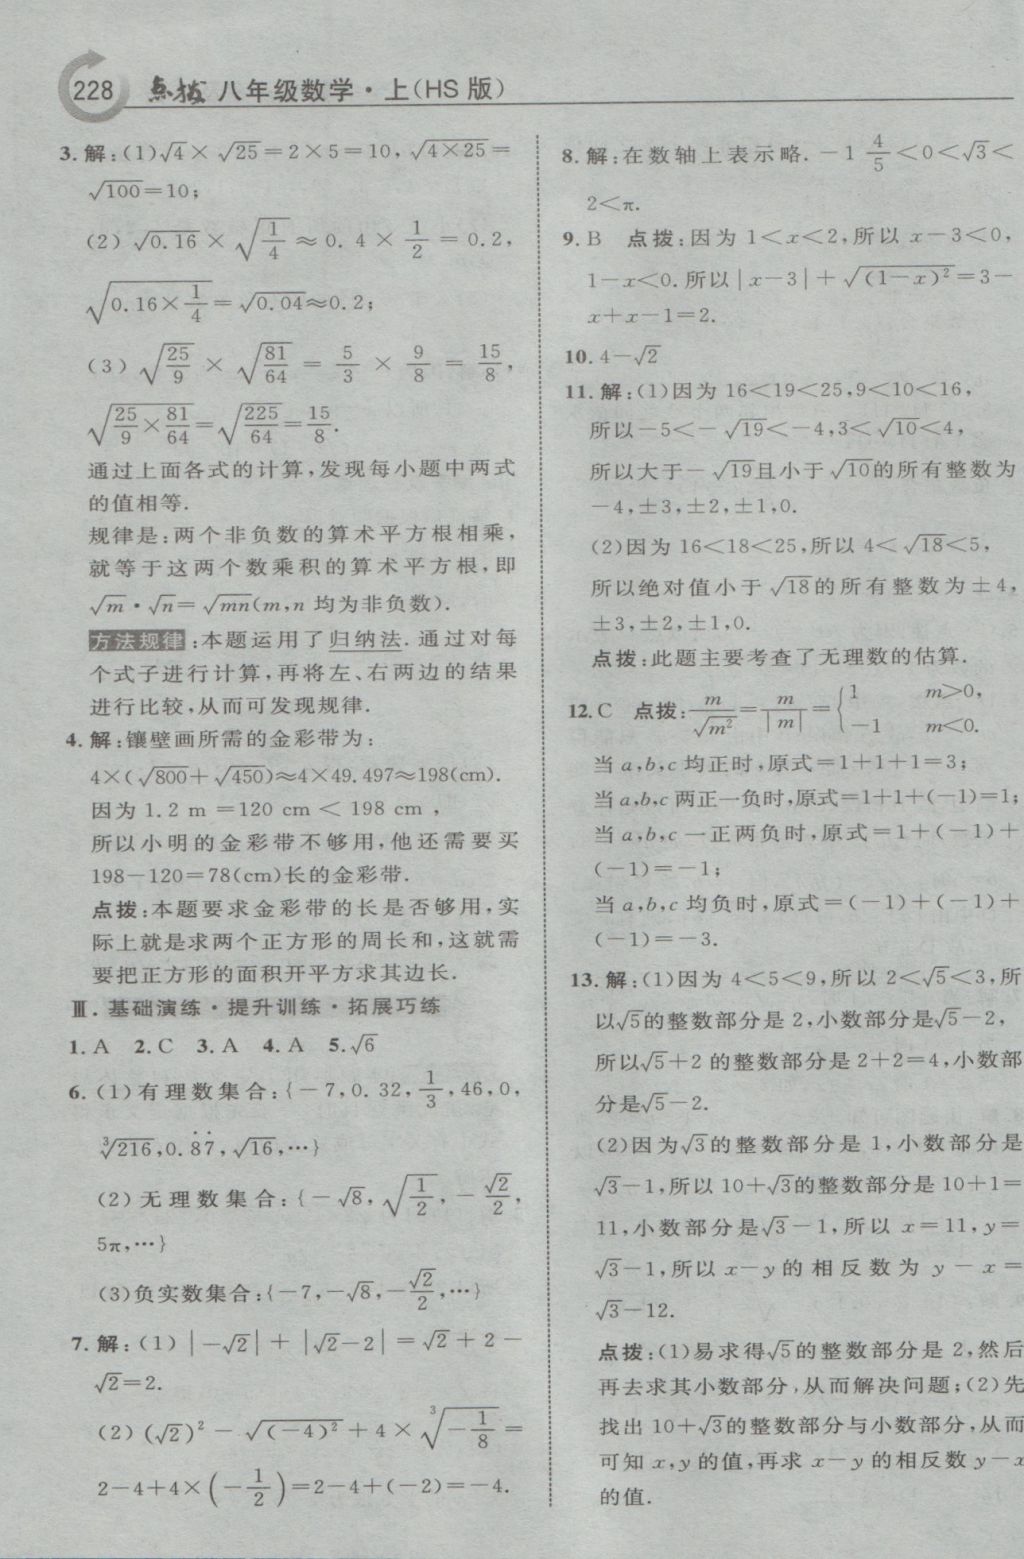 228 点拨 八年级数学·上(HS版)
3. 解:(1)√4×√25=2×5=10,√(4×25)=
√100=10;
(2)√0.16×√(1/4)≈0.4×1/2=0.2,
√(0.16×1/4)=√0.04≈0.2;
(3)√(25/9)×√(81/64)=5/3×9/8=15/8,
√(25/9×81/64)=√(225/64)=15/8.
通过上面各式的计算,发现每小题中两式
的值相等.
规律是:两个非负数的算术平方根相乘,
就等于这两个数乘积的算术平方根,即
√m·√n=√mn(m,n均为非负数).
方法规律:本题运用了归纳法.通过对每
个式子进行计算,再将左、右两边的结果
进行比较,从而可发现规律.
4. 解:镶壁画所需的金彩带为:
4×(√800+√450)≈4×49.497≈198(cm).
因为1.2 m=120 cm<198 cm,
所以小明的金彩带不够用,他还需要买
198-120=78(cm)长的金彩带.
点拨:本题要求金彩带的长是否够用,实
际上就是求两个正方形的周长和,这就需
要把正方形的面积开平方求其边长.
Ⅲ. 基础演练·提升训练·拓展巧练
1. A 2. C 3. A 4. A 5. √6
6. (1)有理数集合:{-7,0.32,1/3,46,0,
∛216,0.8̇7̇,√16,…}
(2)无理数集合:{-√8,√(1/2),-√2/2,
5π,…}
(3)负实数集合:{-7,-√8,-√2/2,…}
7. 解:(1)|-√2|+|√2-2|=√2+2-
√2=2.
(2)(√2)²-√(-4)²+4×∛(-1/8)=
2-4+4×(-1/2)=2-4+(-2)=-4.
8. 解:在数轴上表示略.-1 4/5<0<√3<
2<π.
9. B 点拨:因为1<x<2,所以x-3<0,
1-x<0.所以|x-3|+√(1-x)²=3-
x+x-1=2.
10. 4-√2
11. 解:(1)因为16<19<25,9<10<16,
所以-5<-√19<-4,3<√10<4,
所以大于-√19且小于√10的所有整数为
-4,±3,±2,±1,0.
(2)因为16<18<25,所以4<√18<5,
所以绝对值小于√18的所有整数为±4,
±3,±2,±1,0.
点拨:此题主要考查了无理数的估算.
12. C 点拨:m/√m²=m/|m|={1 m>0, -1 m<0.
当a,b,c均为正时,原式=1+1+1=3;
当a,b,c两正一负时,原式=1+1+(-1)=1;
当a,b,c一正两负时,原式=1+(-1)+
(-1)=-1;
当a,b,c均负时,原式=(-1)+(-1)+
(-1)=-3.
13. 解:(1)因为4<5<9,所以2<√5<3,所
以√5的整数部分是2,小数部分是√5-2,
所以√5+2的整数部分是2+2=4,小数部
分是√5-2.
(2)因为√3的整数部分是1,小数部分是
√3-1,所以10+√3的整数部分是10+1=
11,小数部分是√3-1,所以x=11,y=
√3-1,所以x-y的相反数为y-x=
√3-12.
点拨:(1)易求得√5的整数部分是2,然后
再去求其小数部分,从而解决问题;(2)先
找出10+√3的整数部分与小数部分,从而
可知x,y的值,再求x-y的相反数y-x
的值.